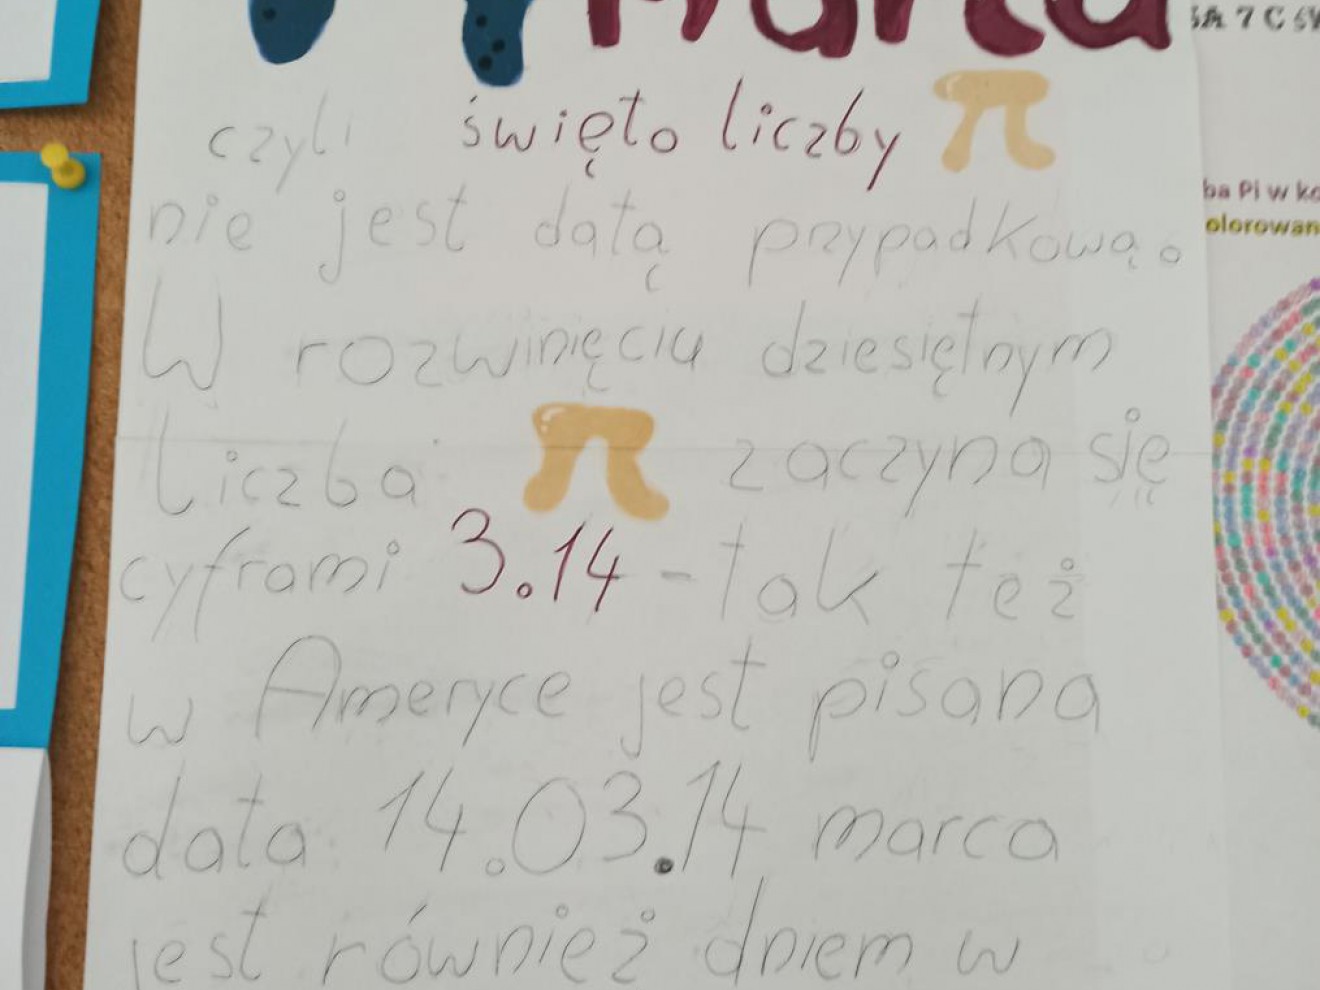 14 marca
czyli święto liczby π
nie jest datą przypadkową.
W rozwinięciu dziesiętnym
liczba π zaczyna się
cyframi 3.14 - tak też
w Ameryce jest pisana
data 14.03.14 marca
jest również dniem w
7 C
ba Pi w ko
olorowan